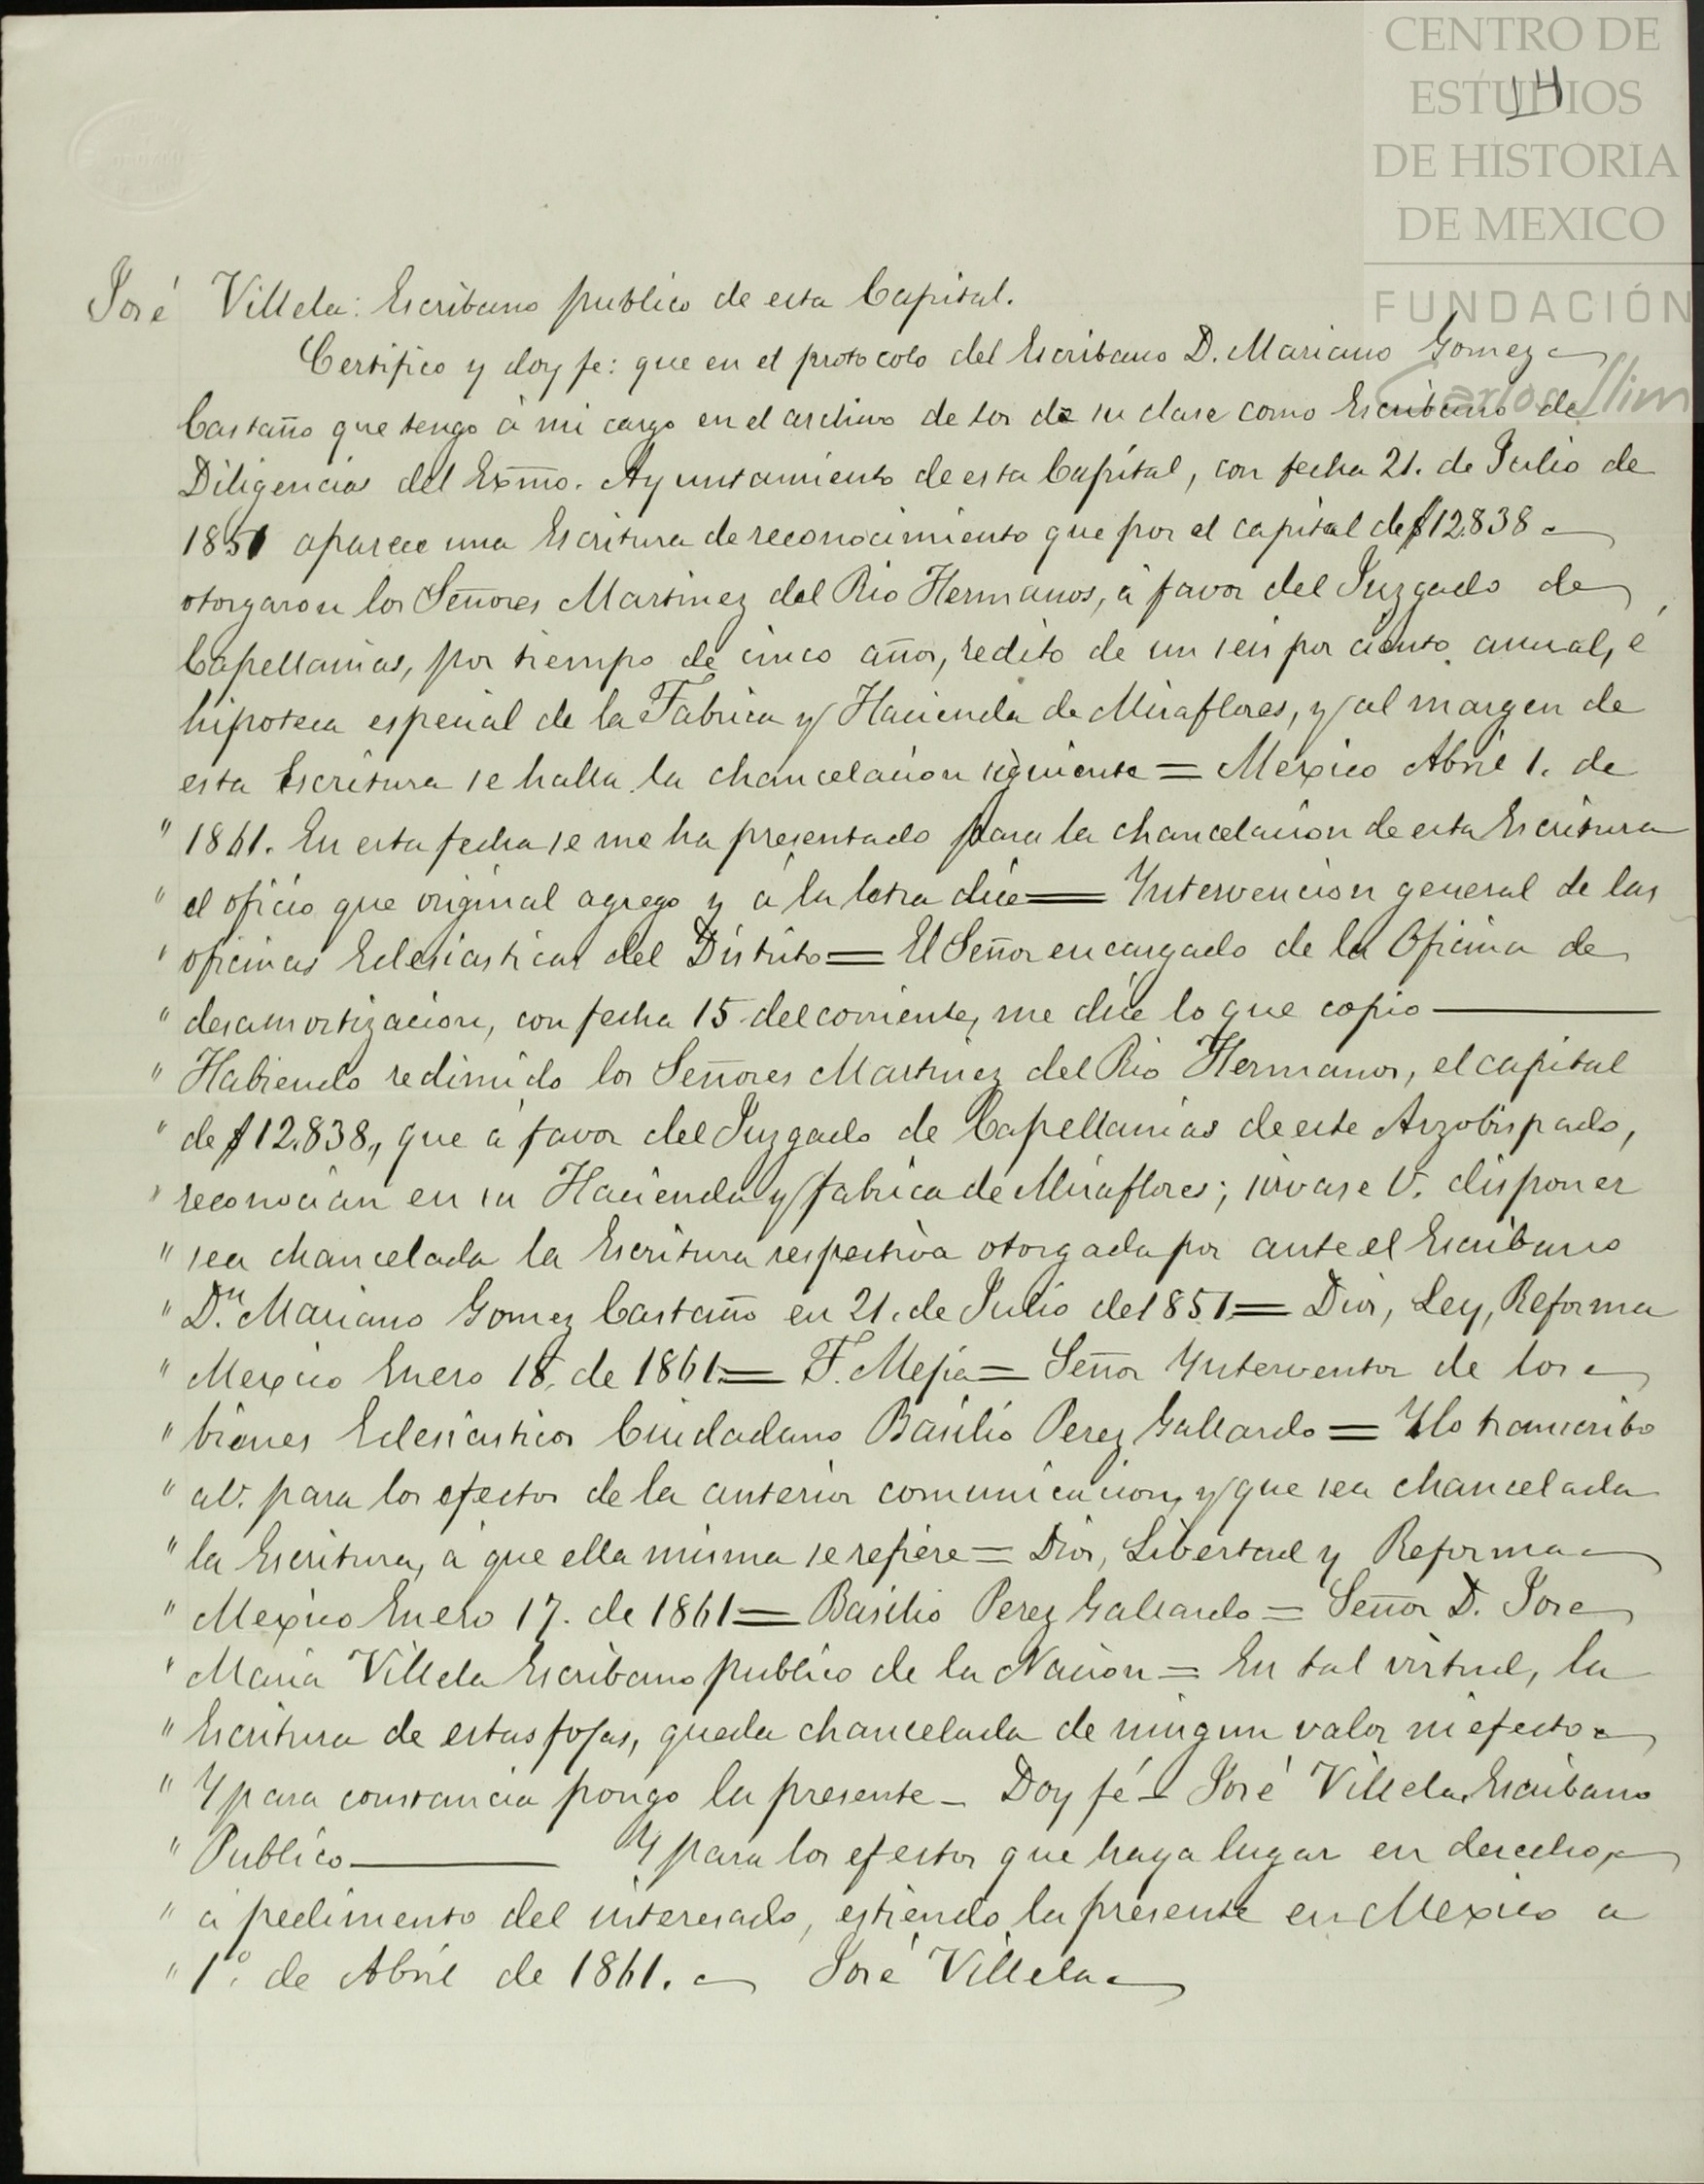 CENTRO DE
ESTUDIOS
14
DE HISTORIA
DE MEXICO
FUNDACIÓN
Carlos Slim
José Villela: Escribano publico de esta Capital.
Certifico y doy fe: que en el protocolo del Escribano D. Mariano Gomez
Castaño que tengo á mi cargo en el archivo de los de su clase como Escribano de
Diligencias del Exmo. Ayuntamiento de esta Capital, con fecha 21. de Julio de
1851 aparece una Escritura de reconocimiento que por el capital de $12.838
otorgaron los Señores Martinez del Rio Hermanos, á favor del Juzgado de
Capellanias, por tiempo de cinco años, redito de un seis por ciento anual, é
hipoteca especial de la Fabrica y Hacienda de Miraflores, y al margen de
esta Escritura se halla la chancelacion siguiente = Mexico Abril 1. de
" 1861. En esta fecha se me ha presentado para la chancelacion de esta Escritura
" el oficio que original agrego y á la letra dice = Yntervencion general de las
" oficinas Eclesiasticas del Distrito = El Señor encargado de la Oficina de
" desamortizacion, con fecha 15 del corriente, me dice lo que copio —
" Habiendo redimido los Señores Martinez del Rio Hermanos, el capital
" de $12.838, que á favor del Juzgado de Capellanias de este Arzobispado,
" reconocian en su Hacienda y fabrica de Miraflores; sirvase V. disponer
" sea chancelada la Escritura respectiva otorgada por ante el Escribano
" Dn. Mariano Gomez Castaño en 21. de Julio de 1851 = Dios, Ley, Reforma
" Mexico Enero 18. de 1861 = F. Mejia = Señor Ynterventor de los
" bienes Eclesiasticos Ciudadano Basilio Perez Gallardo = Y lo transcribo
" a V. para los efectos de la anterior comunicacion, y que sea chancelada
" la Escritura, á que ella misma se refiere = Dios, Libertad y Reforma
" Mexico Enero 17. de 1861 = Basilio Perez Gallardo = Señor D. Jose
" Maria Villela Escribano publico de la Nacion = En tal virtud, la
" Escritura de estas fojas, queda chancelada de ningun valor ni efecto
" Y para constancia pongo la presente - Doy fé - José Villela. Escribano
" Publico — Y para los efectos que haya lugar en derecho,
" á pedimento del interesado, estiendo la presente en Mexico a
" 1º. de Abril de 1861. José Villela